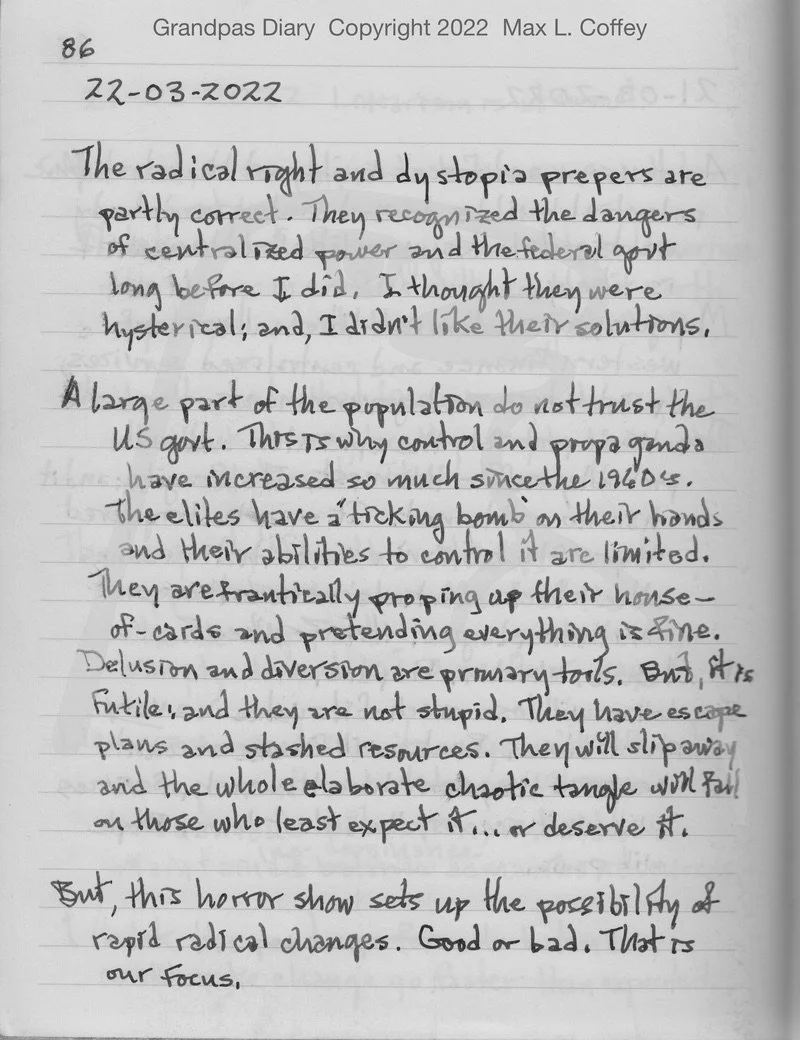 Grandpas Diary Copyright 2022 Max L. Coffey
86
22-03-2022
The radical right and dystopia prepers are
partly correct. They recognized the dangers
of centralized power and the federal govt
long before I did. I thought they were
hysterical; and, I didn't like their solutions.
A large part of the population do not trust the
US govt. This is why control and propaganda
have increased so much since the 1960's.
The elites have a "ticking bomb" on their hands
and their abilities to control it are limited.
They are frantically proping up their house-
of-cards and pretending everything is fine.
Delusion and diversion are primary tools. But, it is
futile; and they are not stupid. They have escape
plans and stashed resources. They will slip away
and the whole elaborate chaotic tangle will fall
on those who least expect it... or deserve it.
But, this horror show sets up the possibility of
rapid radical changes. Good or bad. That is
our focus.